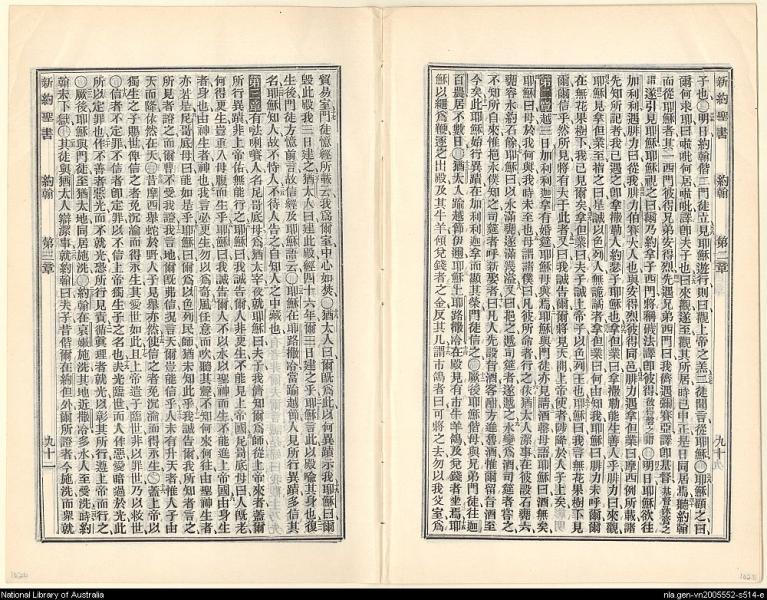 新約聖書 約翰 第二章
子也○明日約翰偕二門徒立見耶穌遊行則曰觀上帝之羔二徒聞言從耶穌○耶穌顧之曰
爾何求耶曰啦吡何居啦吡譯即夫子也曰來觀遂至觀其所居時已申正是日同居焉聽約翰
而從耶穌者其一西門彼得兄弟安得烈先遇兄弟西門曰我儕遇彌賽亞譯即基督
遂引見耶穌耶穌視之曰爾乃約拿子西門將稱磯法譯即彼得○明日耶穌欲往
加利利遇腓力曰從我腓力伯賽大人也與安得烈彼得同邑腓力遇拿但業曰摩西例所載諸
先知所記者我已遇之即拿撒勒人約瑟子耶穌也拿但業曰拿撒勒能生善人乎腓力曰來觀
耶穌見拿但業至指之曰是誠以色列人無詭譎者拿但業曰何由知我耶穌曰腓力未呼爾爾
在無花果樹下我已見爾矣拿但業曰夫子誠上帝子以色列王也耶穌曰我言無花果樹下見
爾爾信乎然所見將有大於此者又曰我誠告爾爾將見天開上帝使者陟降於人子上矣
第二章越三日加利利迦拿有婚筵耶穌母與焉耶穌與門徒亦見請酒罄母語耶穌曰無酒矣
耶穌曰母於我何與我時未至也母謂諸僕曰凡彼所命者行之依猶太人潔事在彼設石甕六
甕容水約石餘耶穌曰以水滿甕遂滿幾溢又曰挹之遞司筵者遂遞之水變為酒司筵者嘗之
不知所自來惟挹水僕知之司筵者呼新娶者曰凡人先設旨酒客酣方進魯酒惟爾留旨酒至
今矣此耶穌始行異蹟在加利利迦拿而顯其榮門徒信之○厥後耶穌偕母與兄弟門徒往迦
百農居不數日○猶太人踰越節伊邇耶穌上耶路撒冷在殿見有市牛羊鴿及兌錢者坐焉耶
穌以繩為鞭逐之出殿及其牛羊傾兌錢者之金反其几謂市鴿者曰可將之去勿以我父室為
貿易室門徒憶經所載云我為爾室中心如焚○猶太人曰爾既為此以何異蹟示我耶穌曰爾
毀此殿我三日建之猶太人曰建此殿經四十六年爾三日建之乎耶穌言此以殿喻其身也復
生後門徒方憶前言故信經及耶穌語云○耶穌在耶路撒冷當踰越節人見所行異蹟多信其
名耶穌知人故不恃人不待人告之自知人之中藏也
第三章有𠵽唎㘔人名尼哥底母為猶太宰夜就耶穌曰夫子我儕知爾為師從上帝來者蓋爾
所行異蹟非上帝佑無能行之耶穌曰我誠告爾人非更生不能見上帝國尼哥底母曰人既老
何得更生豈重入母腹而生乎耶穌曰我誠告爾人不以水以聖神而生不能進上帝國由身生
者身也由神生者神也我言必更生勿以為奇風任意而吹聽其聲不知何來何往由聖神生者
亦若是尼哥底母曰焉能如是乎耶穌曰爾為以色列民師猶未知此乎我誠告爾我所知者言之
所見者證之而爾曹不受我證我言地爾既弗信況言天爾豈能信乎人未有升天者惟人子由
天而降依然在天○昔摩西舉蛇於野人子見舉亦然使信之者免沉淪而得永生○蓋上帝以
獨生之子賜世俾信之者免沉淪而得永生其愛世如此且上帝遣子臨世非以罪世乃以救世
○信者不定罪不信者即定罪以不信上帝獨生子之名也夫光臨世而人作惡愛暗過於光此
所以定罪也作不善者惡光而不就光恐所行見責循真理者就光以彰其所行遵上帝而行之
○厥後耶穌與門徒至猶太地同居施洗○約翰在哀嫩施洗其地近撒冷多水人至受洗時約
翰未下獄○其徒與猶太人辯潔事就約翰曰夫子昔偕爾在約但外爾所證者今施洗而眾就
新約聖書 約翰 第三章
nla.gen-vn2005552-s514-e
National Library of Australia